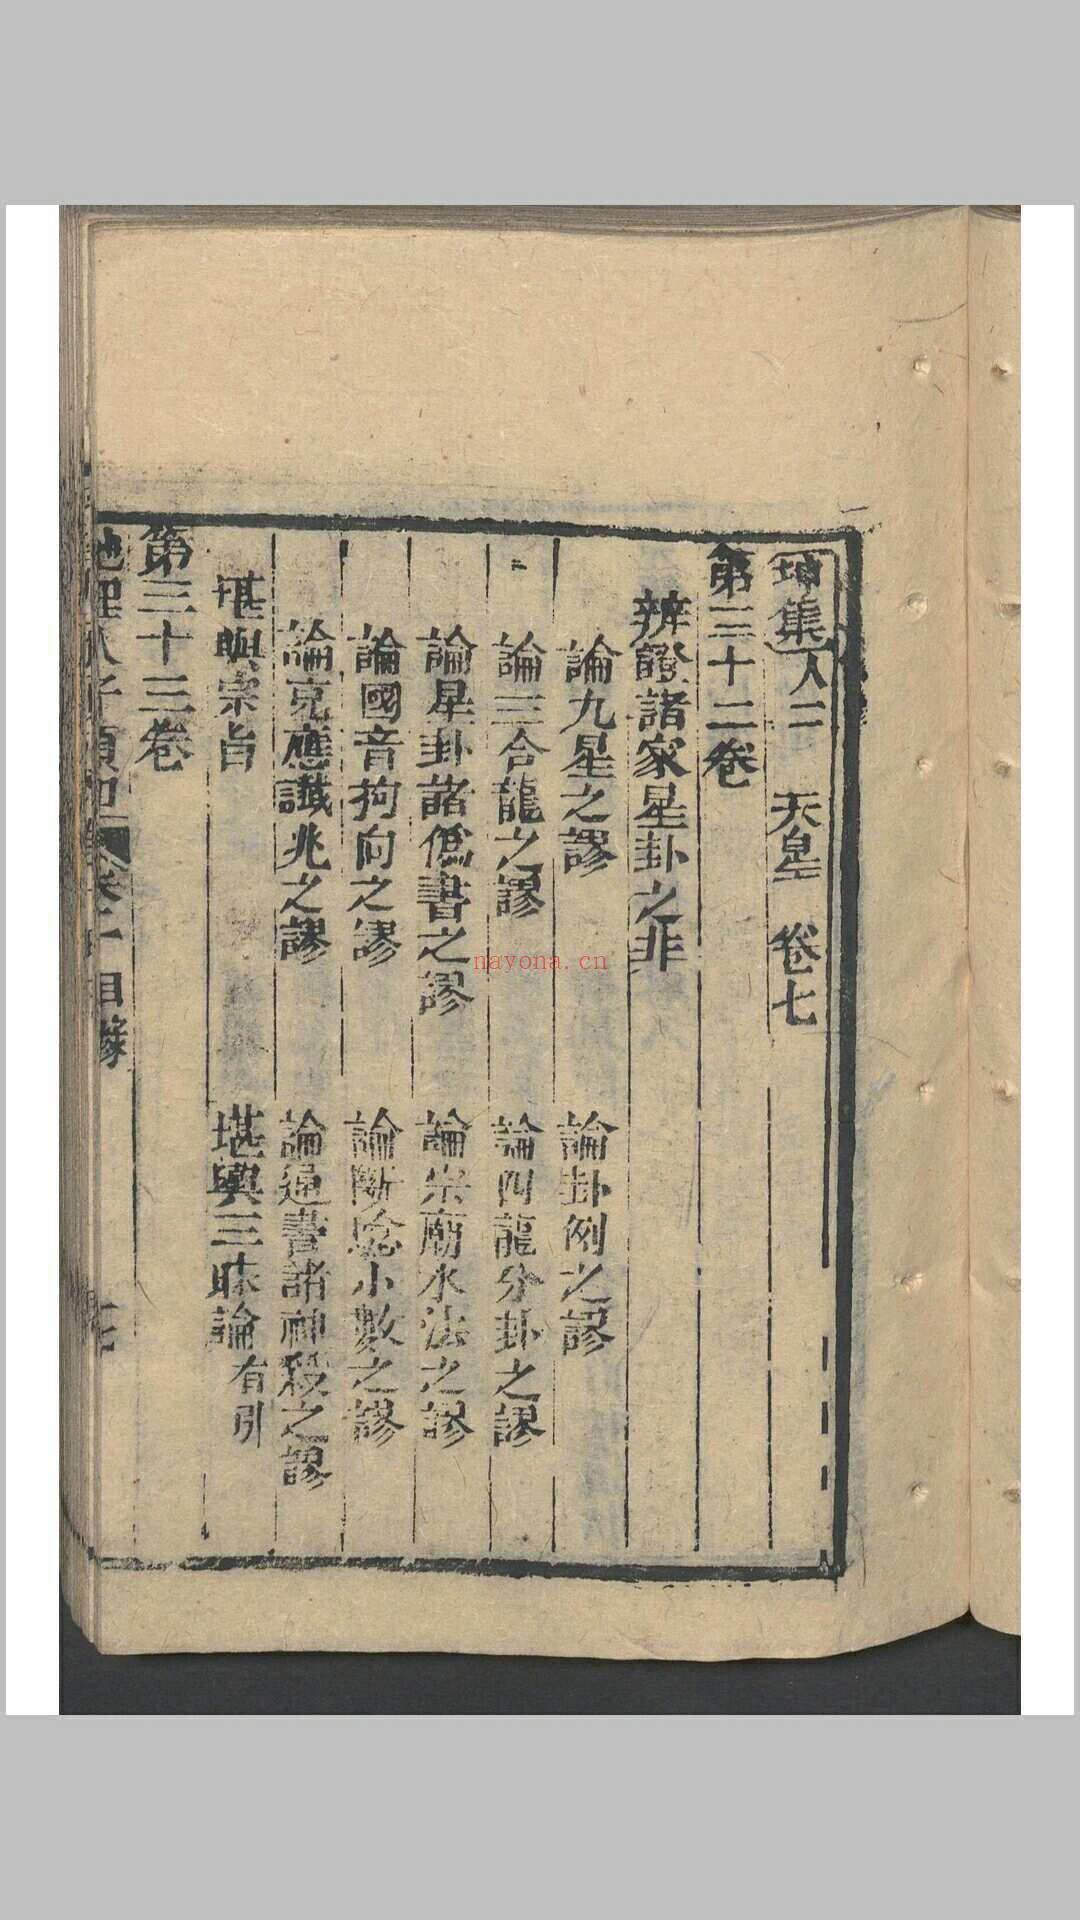 坤集人二　天皇　卷七
第三十二卷
辨證諸家星卦之非
論九星之謬　論卦例之謬
論三合龍之謬　論四龍分卦之謬
論星卦諸僞書之謬　論宗廟水法之謬
論國音拘向之謬　論斷驗小數之謬
論克應讖兆之謬　論通書諸神殺之謬
堪輿宗旨　堪輿三昧論有引
第三十三卷
地理人子須知　卷　目錄
nayona.cn